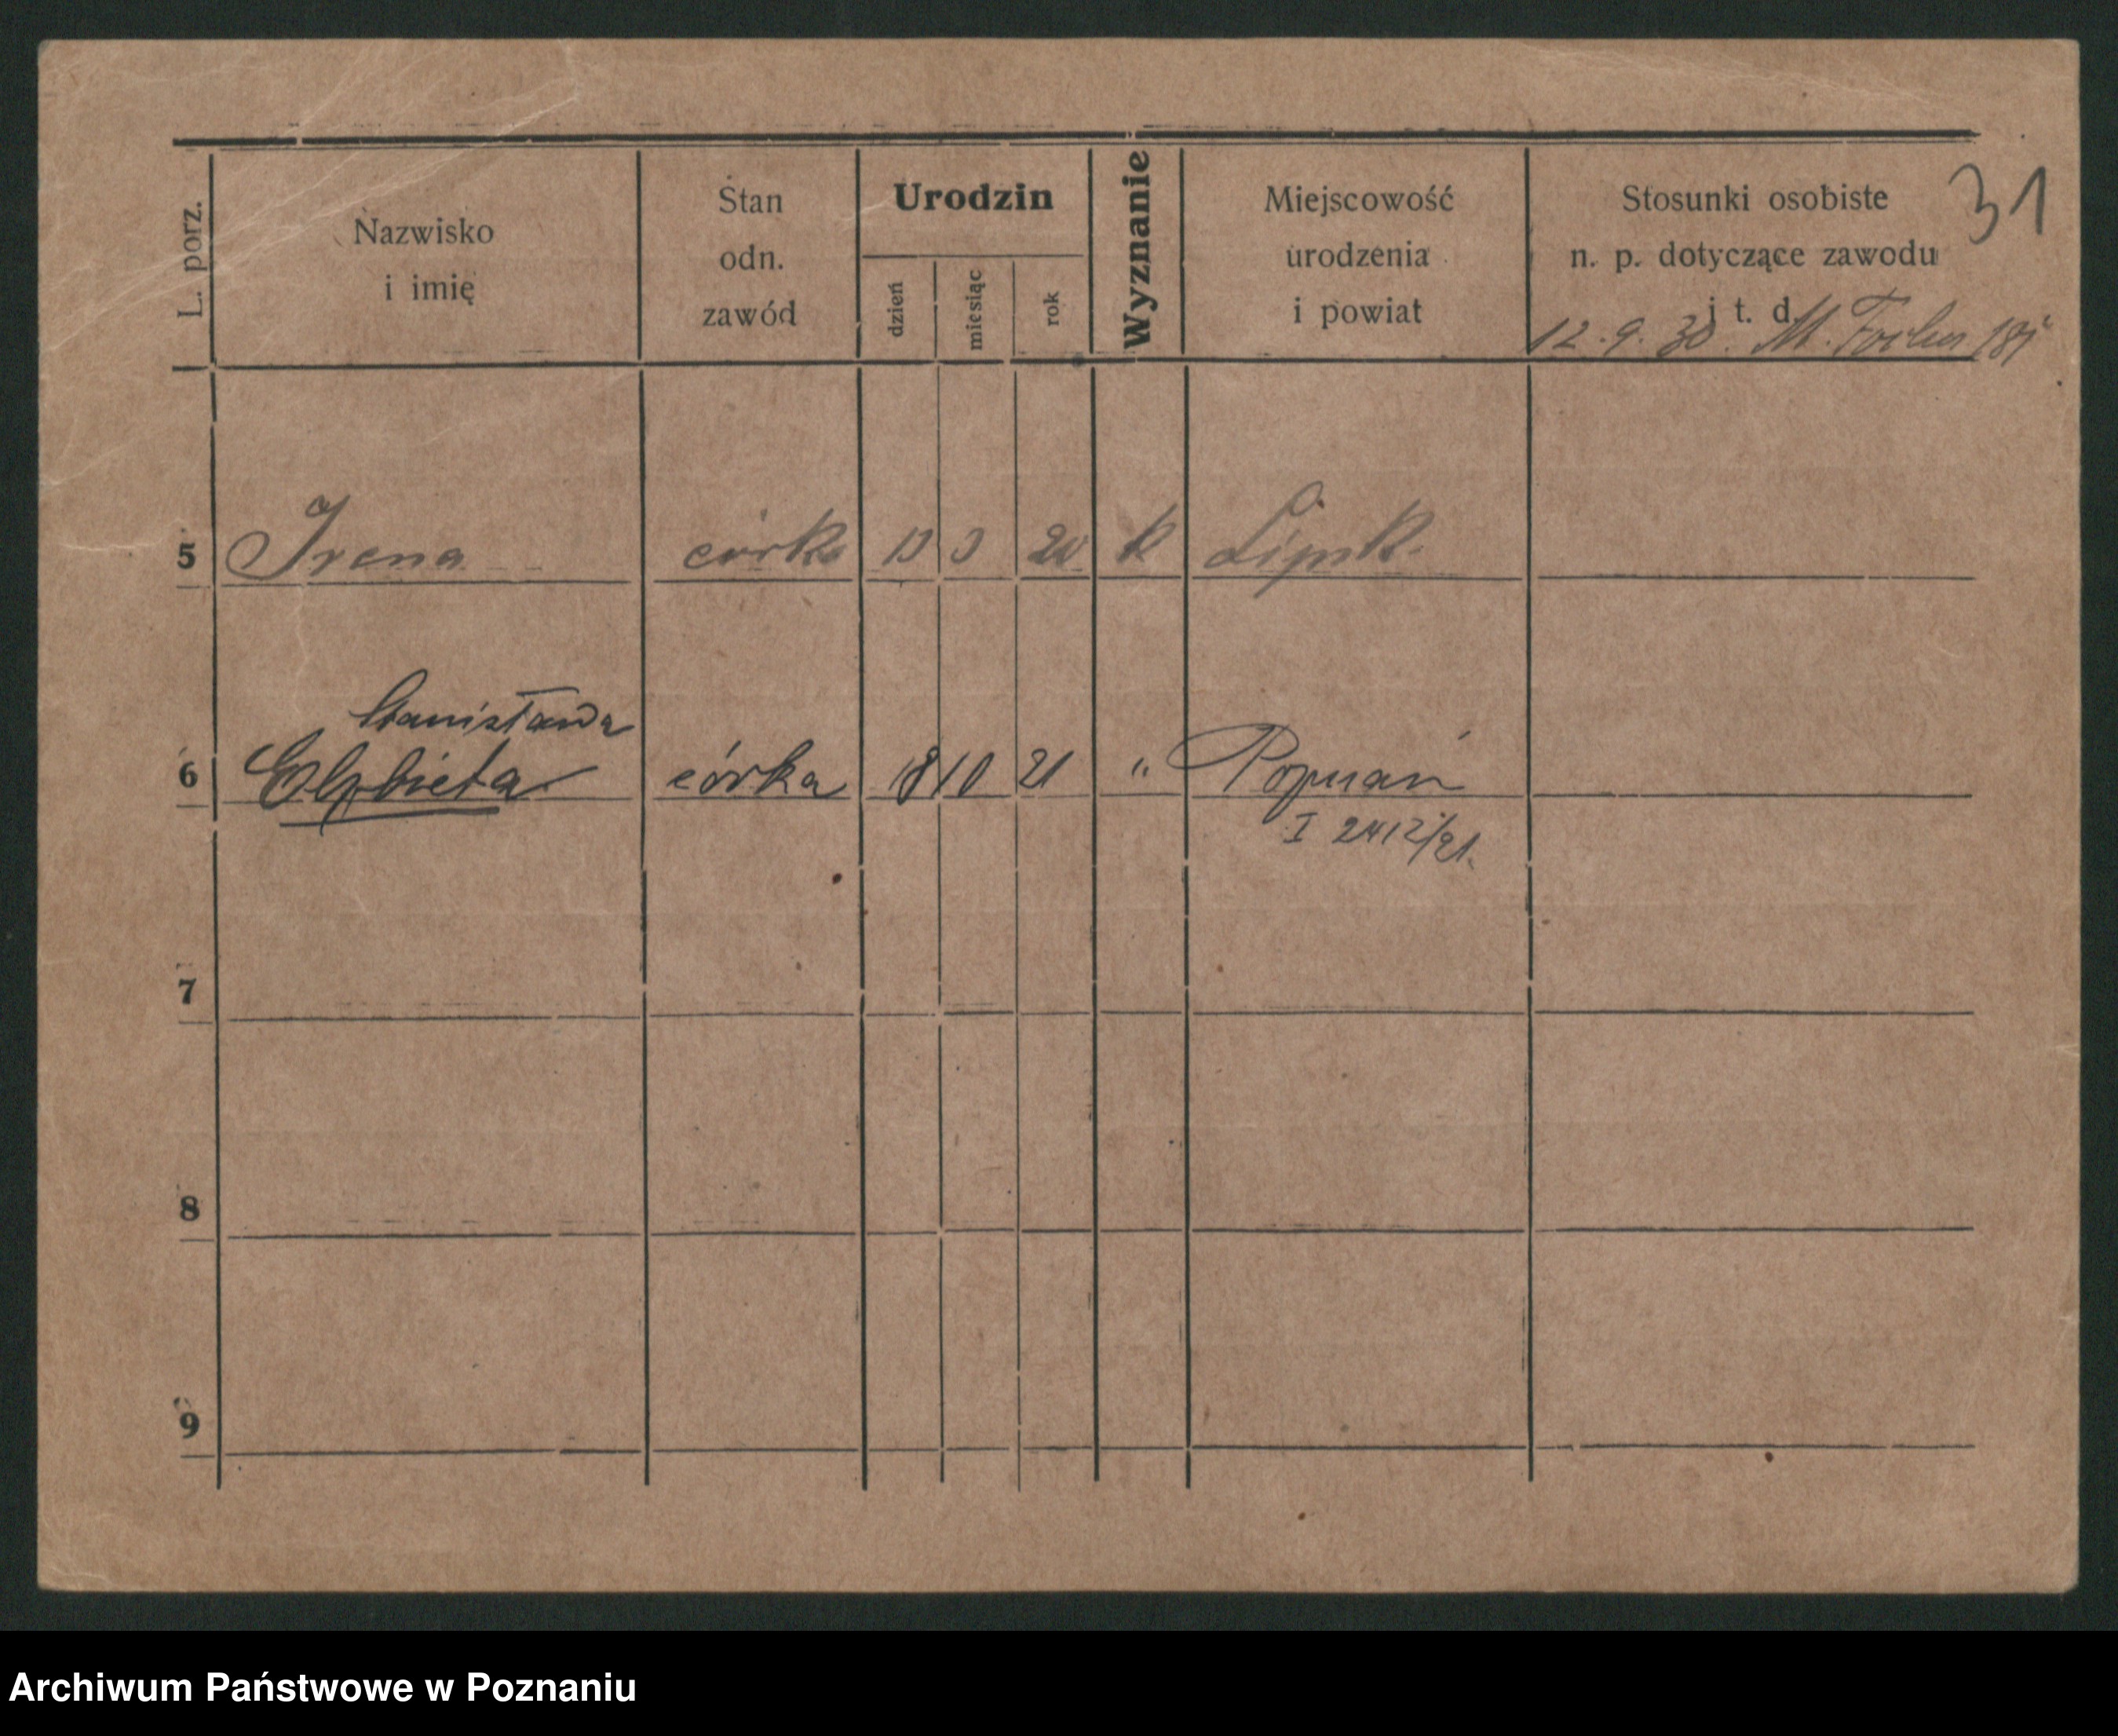 31
L. porz.
Nazwisko
i imię
Stan
odn.
zawód
Urodzin
dzień
miesiąc
rok
Wyznanie
Miejscowość
urodzenia
i powiat
Stosunki osobiste
n. p. dotyczące zawodu
i t. d.
12.9.30. M.
5 Irena córka 20 k Lipsk
Stanisława
6 Elżbieta córka 18 10 21 " Poznań
I 2412/21.
7
8
9
Archiwum Państwowe w Poznaniu